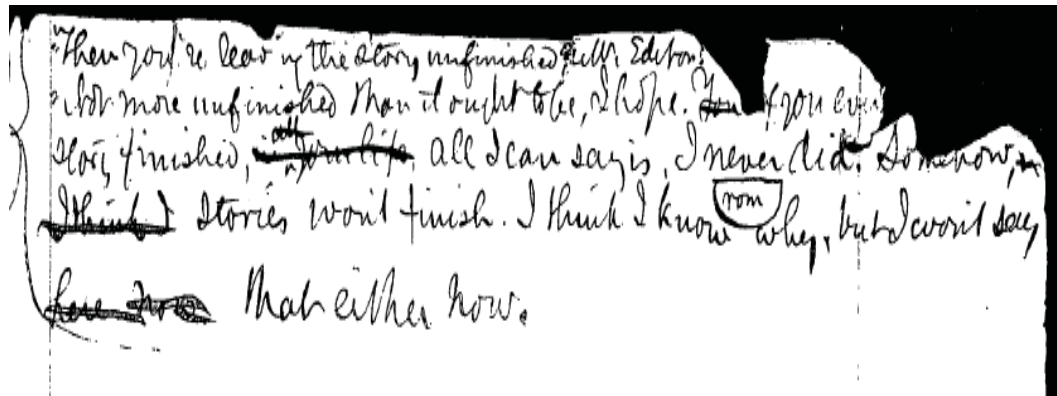 "Then you're leaving the story unfinished, Mr. Editor!"
"Not more unfinished than it ought to be, I hope. If you ever
story finished, all I can say is, I never did. Somehow,
stories won't finish. I think I know why, but I won't say
rom
that either now.